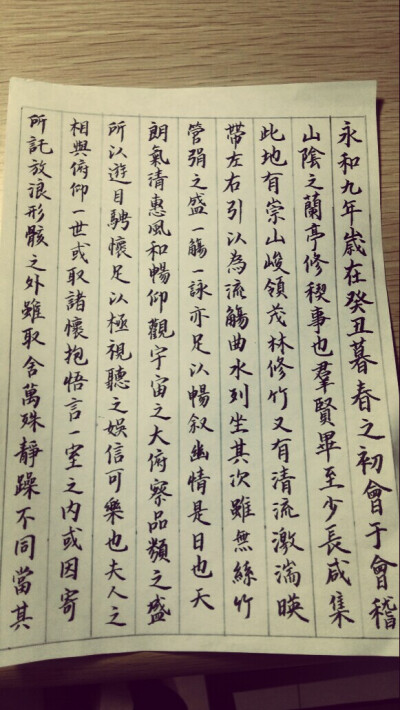 永和九年歲在癸丑暮春之初會于會稽
山陰之蘭亭修稧事也羣賢畢至少長咸集
此地有崇山峻領茂林修竹又有清流激湍暎
帶左右引以為流觴曲水列坐其次雖無絲竹
管弦之盛一觴一詠亦足以暢叙幽情是日也天
朗氣清惠風和暢仰觀宇宙之大俯察品類之盛
所以遊目騁懷足以極視聽之娛信可樂也夫人之
相與俯仰一世或取諸懷抱悟言一室之內或因寄
所託放浪形骸之外雖取舍萬殊靜躁不同當其